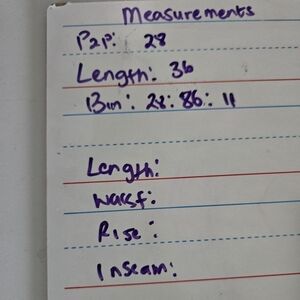 Measurements
P2P: 28
Length: 36
Bin: 28: 86: 11
Length:
Waist:
Rise:
Inseam: